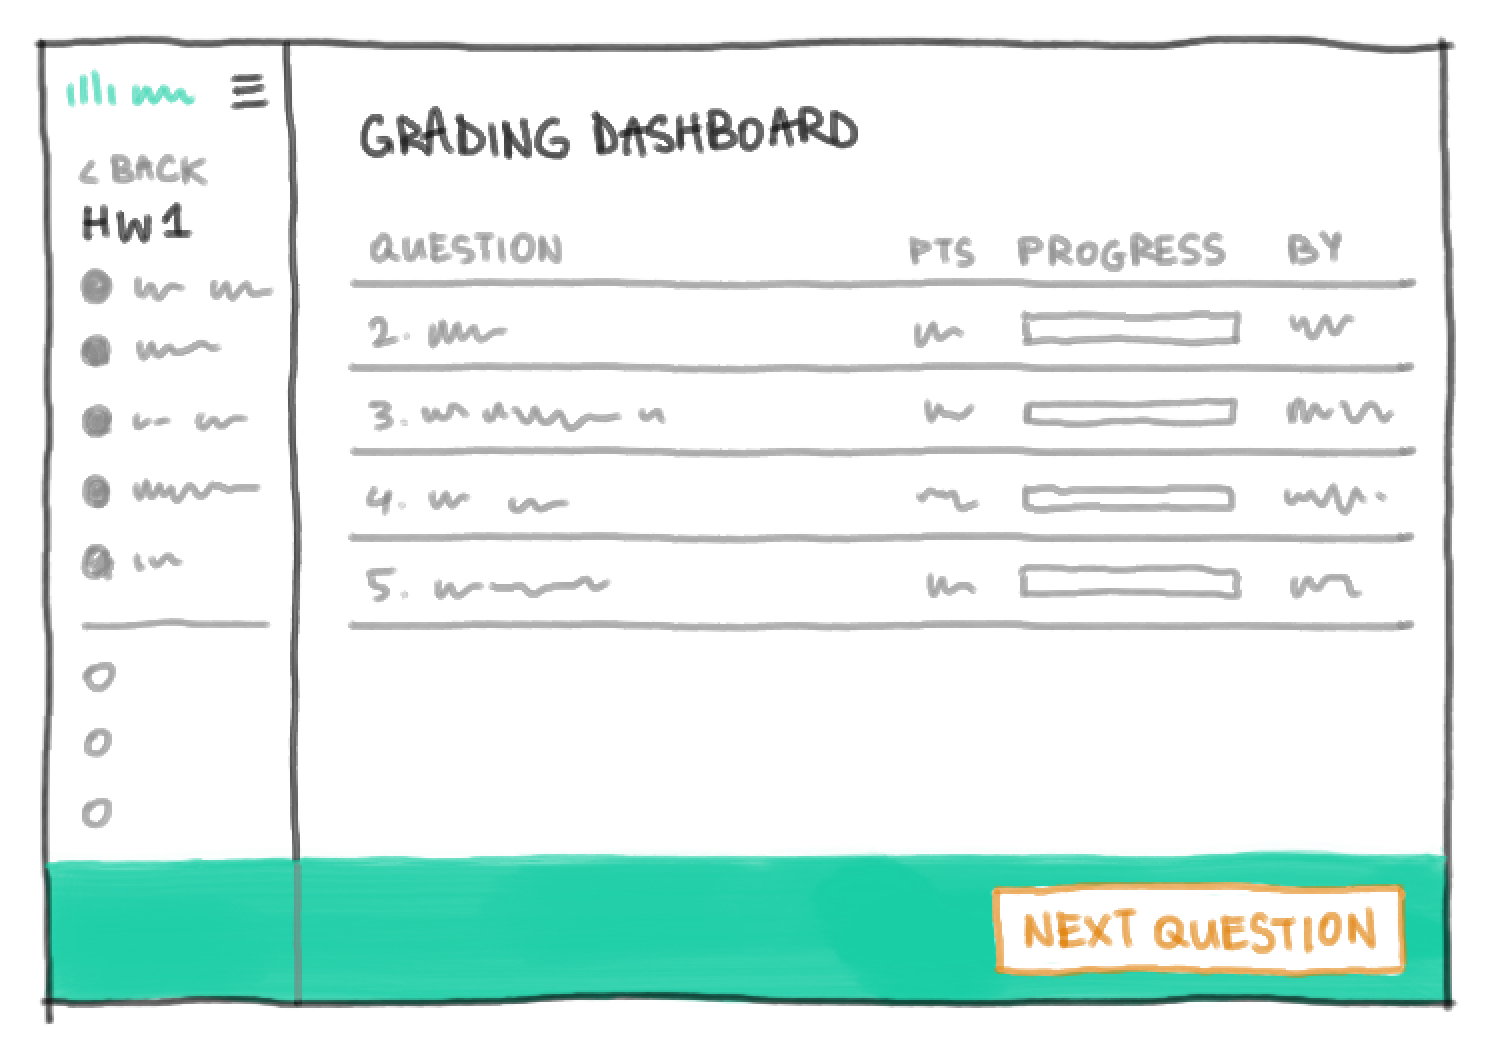 < BACK
HW1
GRADING DASHBOARD
QUESTION PTS PROGRESS BY
2.
3.
4.
5.
NEXT QUESTION